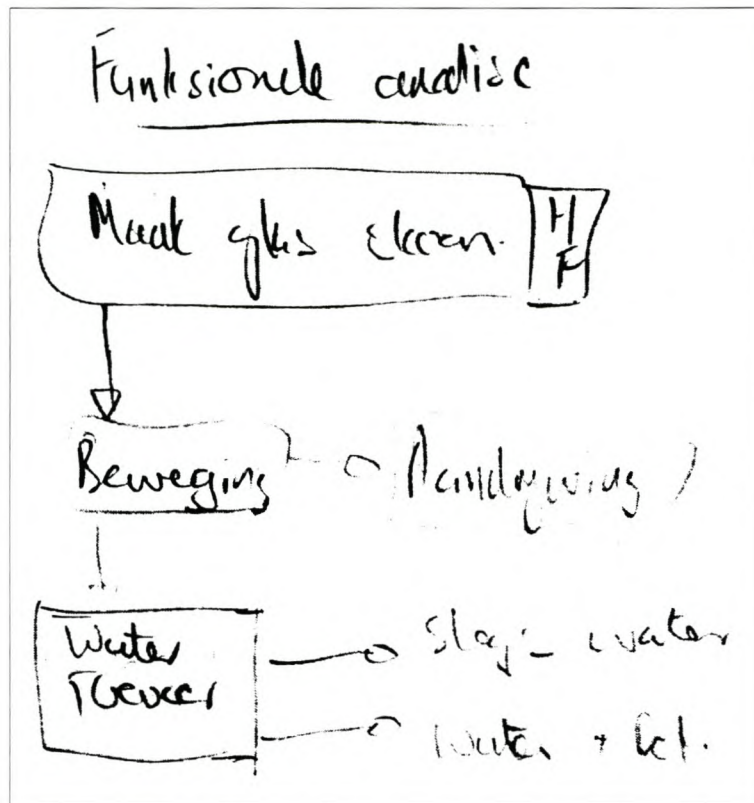 Funksionele analise
Maak glas skoon.
H
F
Beweging
Aandrywing
Water
Toevoer
Slegs water
Water +